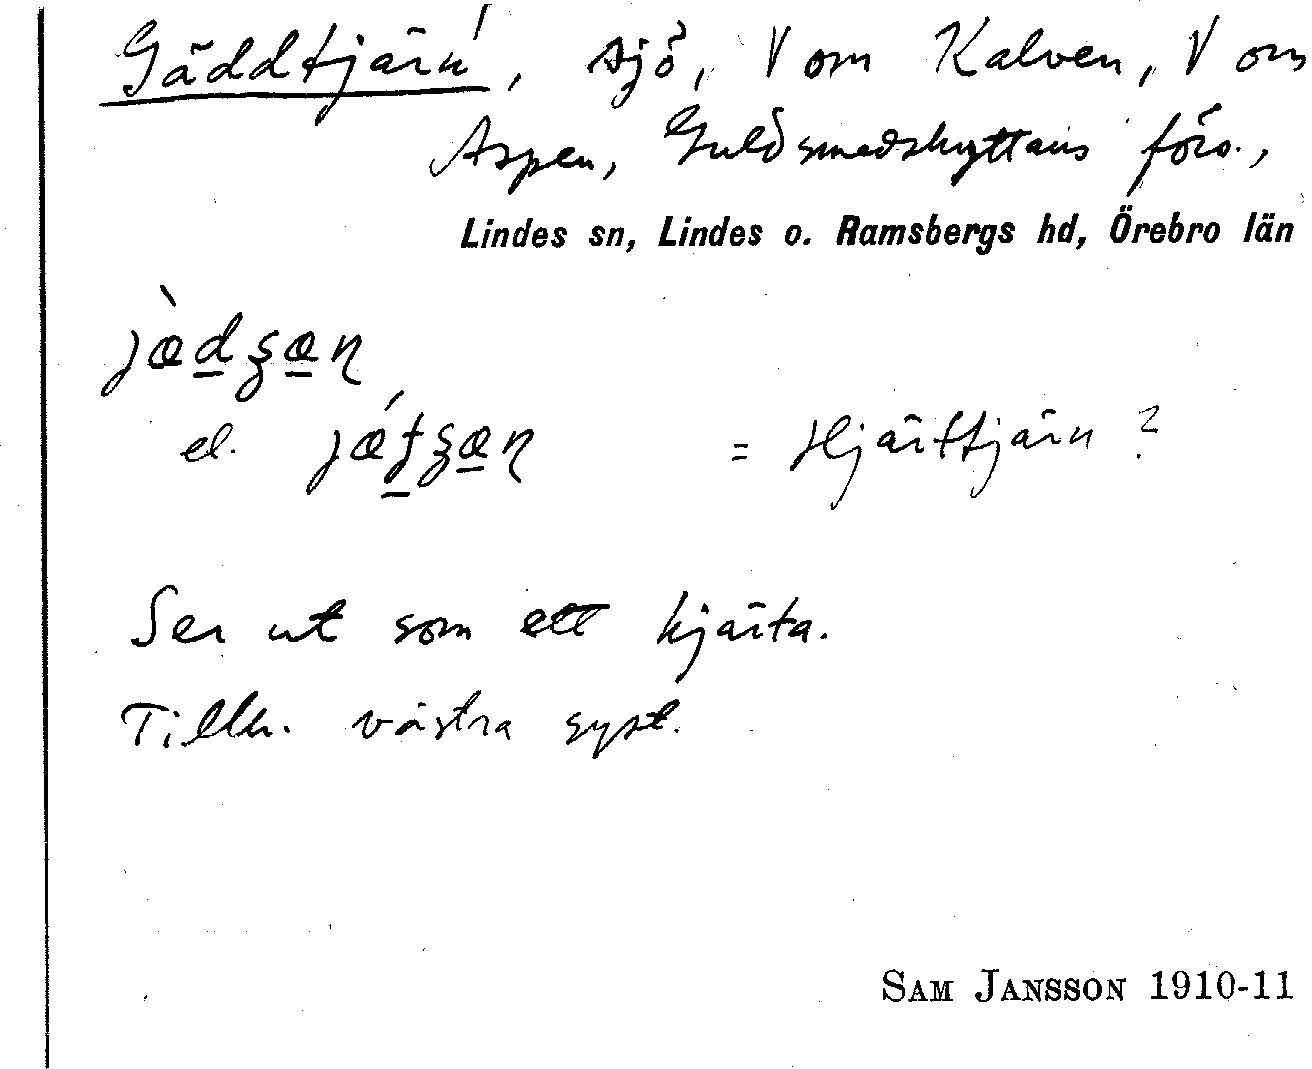 Gäddtjärn!, sjö, V om Kalven, V om
Aspen, Guldsmedshyttans förs.,
Lindes sn, Lindes o. Ramsbergs hd, Örebro län
el. = Hjärttjärn ?
Ser ut som ett hjärta.
Tillh. västra syst.
SAM JANSSON 1910-11